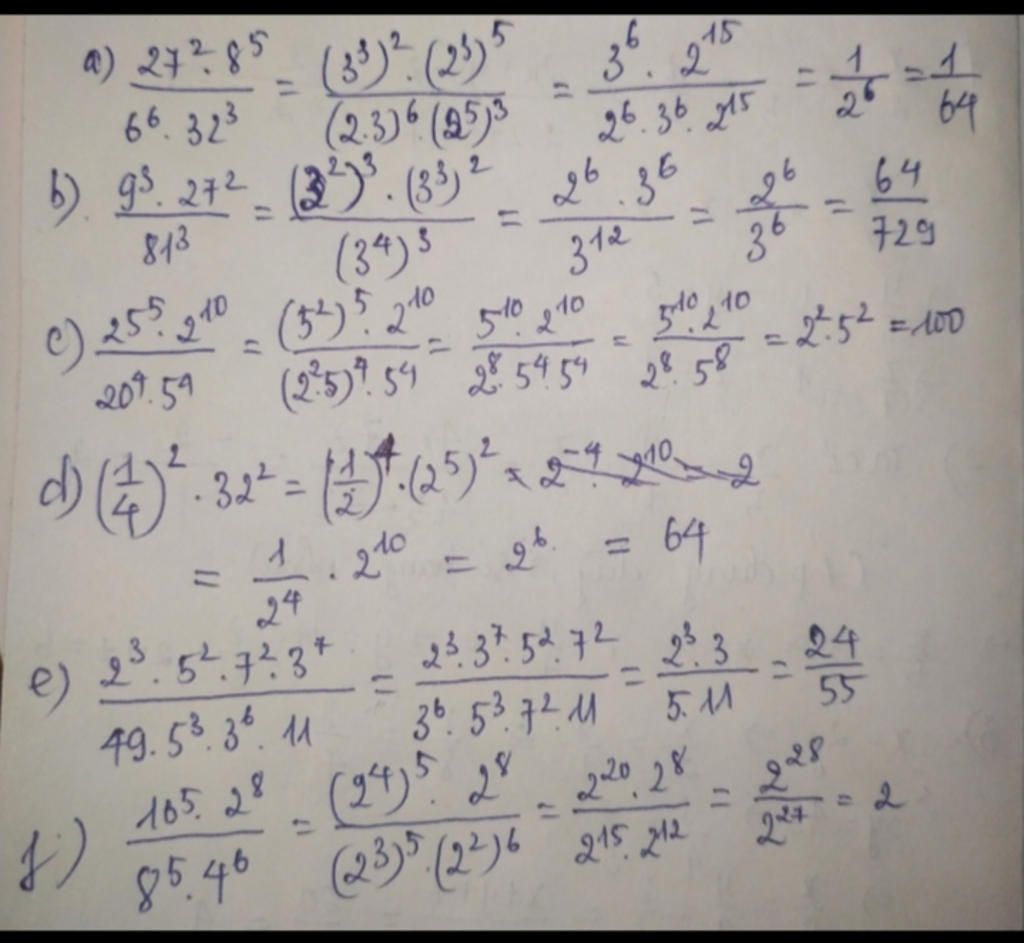 a) \frac{27^2 . 8^5}{6^6 . 32^3} = \frac{(3^3)^2 . (2^3)^5}{(2.3)^6 . (2^5)^3} = \frac{3^6 . 2^{15}}{2^6 . 3^6 . 2^{15}} = \frac{1}{2^6} = \frac{1}{64}
b). \frac{9^3 . 27^2}{81^3} = \frac{(3^2)^3 . (3^3)^2}{(3^4)^3} = \frac{2^6 . 3^6}{3^{12}} = \frac{2^6}{3^6} = \frac{64}{729}
c) \frac{25^5 . 2^{10}}{20^4 . 5^4} = \frac{(5^2)^5 . 2^{10}}{(2^2 . 5)^4 . 5^4} = \frac{5^{10} . 2^{10}}{2^8 . 5^4 . 5^4} = \frac{5^{10} . 2^{10}}{2^8 . 5^8} = 2^2 . 5^2 = 100
d) (\frac{1}{4})^2 . 32^2 = (\frac{1}{2})^4 . (2^5)^2 = 2^{-4} . 2^{10} = 2
= \frac{1}{2^4} . 2^{10} = 2^6 = 64
e) \frac{2^3 . 5^2 . 7^2 . 3^7}{49 . 5^3 . 3^6 . 11} = \frac{2^3 . 3^7 . 5^2 . 7^2}{3^6 . 5^3 . 7^2 . 11} = \frac{2^3 . 3}{5 . 11} = \frac{24}{55}
f) \frac{16^5 . 2^8}{8^5 . 4^6} = \frac{(2^4)^5 . 2^8}{(2^3)^5 . (2^2)^6} = \frac{2^{20} . 2^8}{2^{15} . 2^{12}} = \frac{2^{28}}{2^{27}} = 2